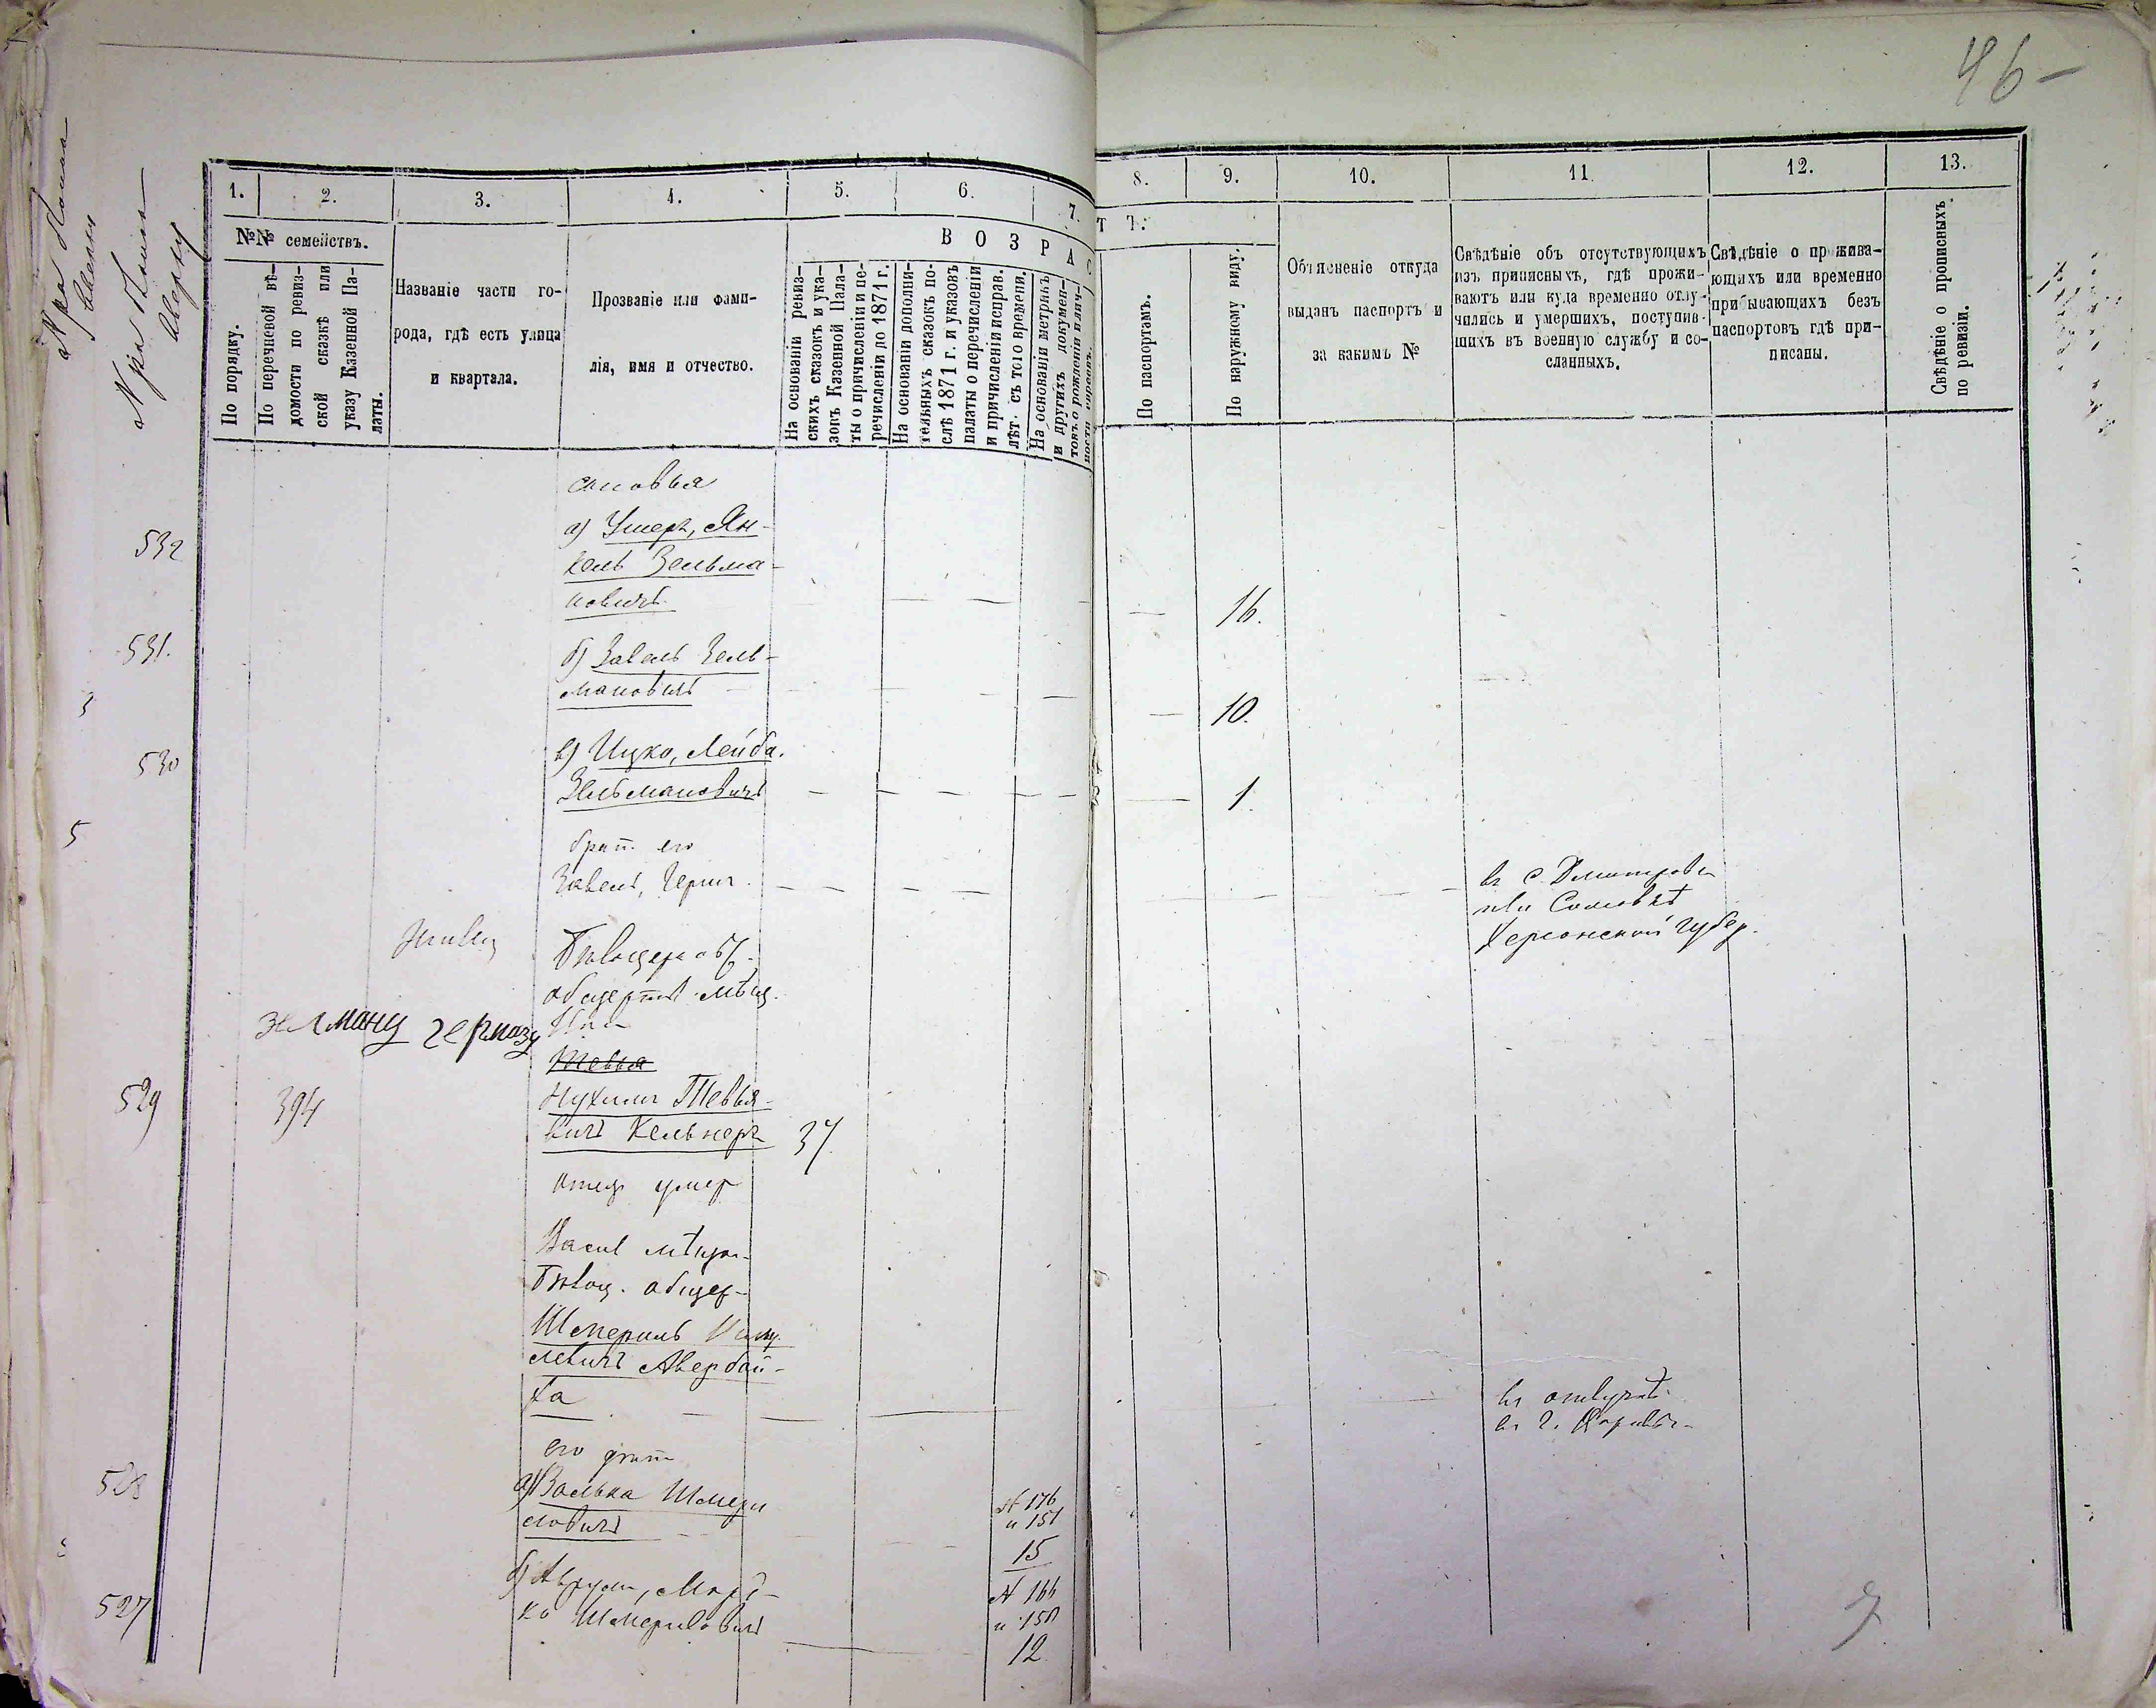 46-
1.
2.
3.
4.
5.
6.
7.
8.
9.
10.
11.
12.
13.
№№ семействъ.
По порядку.
По перечневой вѣ-
домости по ревиз-
ской сказкѣ или
указу Казенной Па-
латы.
Названіе части го-
рода, гдѣ есть улица
и квартала.
Прозваніе или фами-
лія, имя и отчество.
ВОЗРАСТЪ.
На основаніи ревиз-
скихъ сказокъ и ука-
зокъ Казенной Пала-
ты о причисленіи и пе-
речисленіи до 1871 г.
На основаніи дополни-
тельныхъ сказокъ по-
слѣ 1871 г. и указовъ
палаты о перечисленіи
и причисленіи исправ.
лѣт. съ того времени.
На основаніи метрикъ
и другихъ докумен-
товъ о рожденіи и лич-
ности
По паспортамъ.
По наружному виду.
Объясненіе откуда
выданъ паспортъ и
за какимъ №
Свѣдѣніе объ отсутствующихъ
изъ приписныхъ, гдѣ прожи-
ваютъ или куда временно отлу-
чились и умершихъ, поступив-
шихъ въ военную службу и со-
сланныхъ.
Свѣдѣніе о прожива-
ющихъ или временно
прибывающихъ безъ
паспортовъ гдѣ при-
писаны.
Свѣдѣніе о прописныхъ
по ревизіи.
сыновья
532
а) Ушеръ, Ян-
кель Зельма-
новичъ 16.
531.
б) Завель Зель-
мановичъ 10.
3
530
в) Ицко, Лейба
Зельмановичъ 1.
5
брат его
Завель, Герш
въ с Дмитров
или
Херсонской губер.
общертъ мѣщ.
Зелману
Тевья
529 394 Нухимъ Тевья-
вичъ Кельнеръ 37.
отец умер
мѣщан
общер-
Шмериль
левичъ Авербай-
ха
въ отлучкѣ
въ г.
его
528 а) Волька Шмери
ловичъ
№ 176
и 151
15
527 б) Аврум, Морд-
ко Шмериловичъ
№ 166
и 150
12